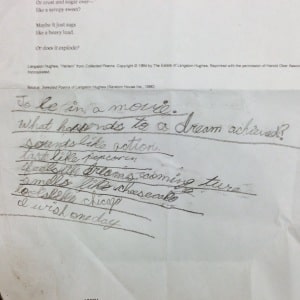 Or crust and sugar over—
like a syrupy sweet?
Maybe it just sags
like a heavy load.
Or does it explode?
Langston Hughes, "Harlem" from Collected Poems. Copyright © 1994 by The Estate of Langston Hughes. Reprinted with the permission of Harold Ober Associates
Incorporated.
Source: Selected Poems of Langston Hughes (Random House Inc., 1990)
To be in a movie.
What happends to a dream achieved?
sounds like action
taste like popcorn
dreams coming ture
smells like cheesecake
like
I wish oneday